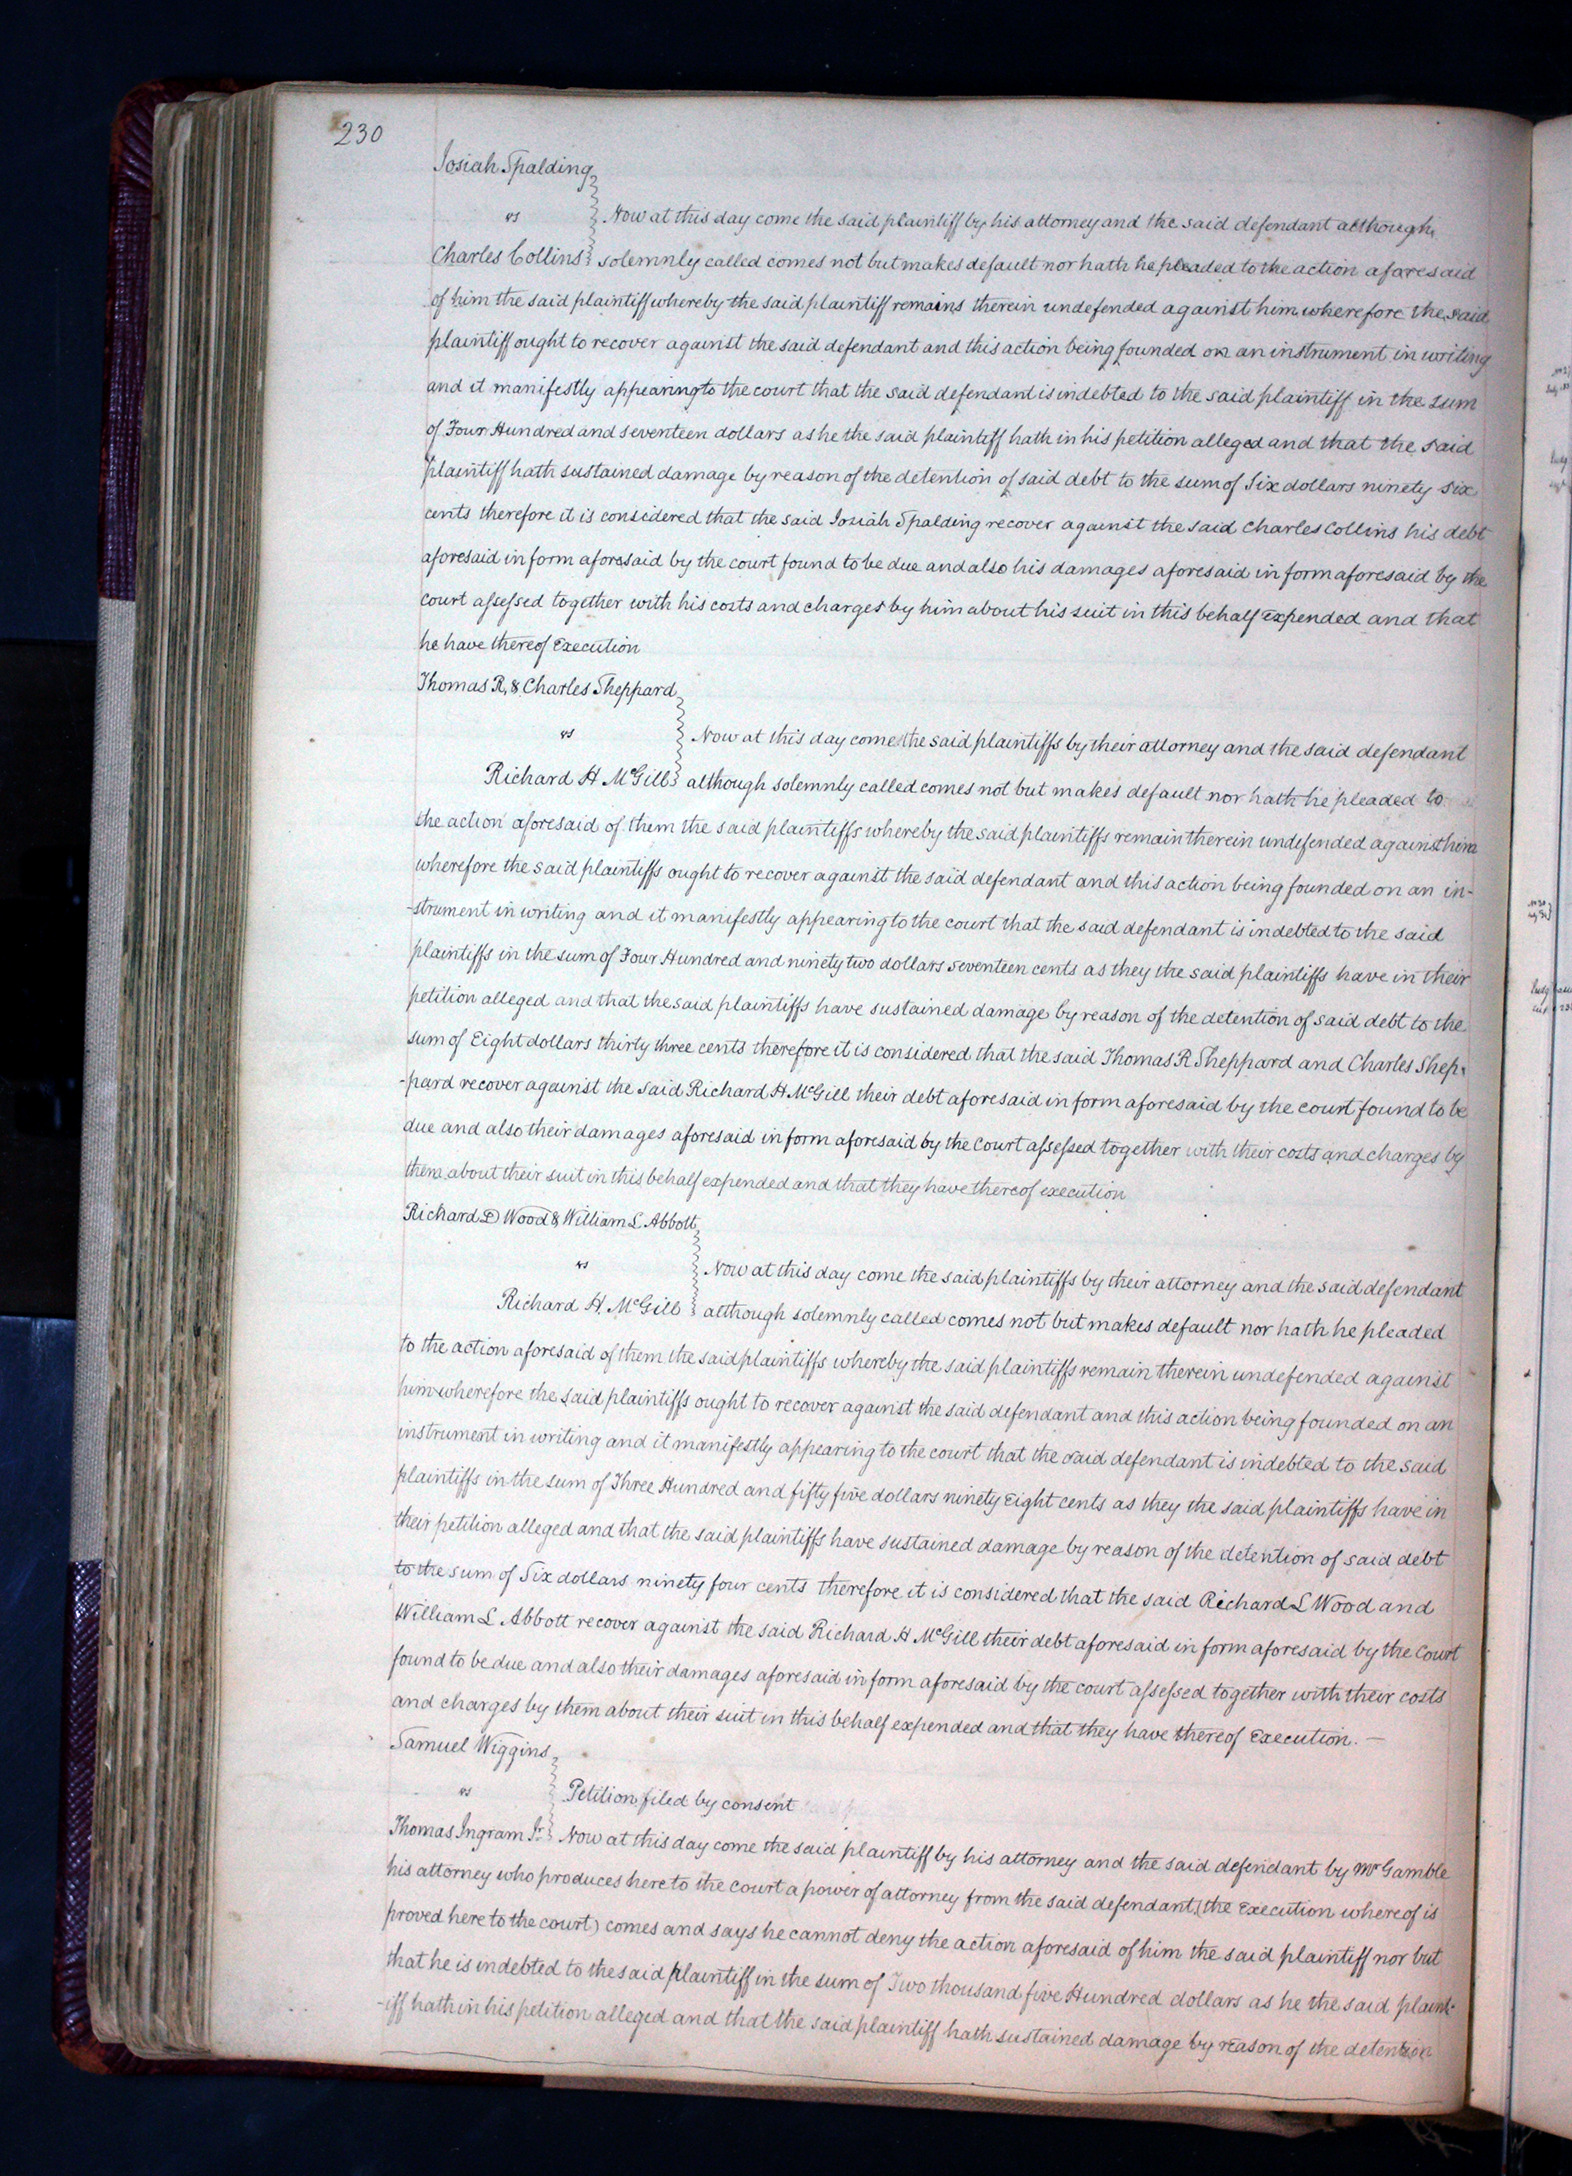 230
Josiah Spalding
vs
Now at this day come the said plaintiff by his attorney and the said defendant although
Charles Collins solemnly called comes not but makes default nor hath he pleaded to the action aforesaid
of him the said plaintiff whereby the said plaintiff remains therein undefended against him wherefore the said
plaintiff ought to recover against the said defendant and this action being founded on an instrument in writing
and it manifestly appearing to the court that the said defendant is indebted to the said plaintiff in the sum
of Four Hundred and seventeen dollars as he the said plaintiff hath in his petition alleged and that the said
plaintiff hath sustained damage by reason of the detention of said debt to the sum of Six dollars ninety six
cents therefore it is considered that the said Josiah Spalding recover against the said Charles Collins his debt
aforesaid in form aforesaid by the court found to be due and also his damages aforesaid in form aforesaid by the
court assessed together with his costs and charges by him about his suit in this behalf expended and that
he have thereof Execution
Thomas R, & Charles Sheppard
vs
Now at this day come the said plaintiffs by their attorney and the said defendant
Richard H McGill although solemnly called comes not but makes default nor hath he pleaded to
the action aforesaid of them the said plaintiffs whereby the said plaintiffs remain therein undefended against him
wherefore the said plaintiffs ought to recover against the said defendant and this action being founded on an in-
-strument in writing and it manifestly appearing to the court that the said defendant is indebted to the said
plaintiffs in the sum of Four Hundred and ninety two dollars seventeen cents as they the said plaintiffs have in their
petition alleged and that the said plaintiffs have sustained damage by reason of the detention of said debt to the
sum of Eight dollars thirty three cents therefore it is considered that the said Thomas R Sheppard and Charles Shep-
-pard recover against the said Richard H McGill their debt aforesaid in form aforesaid by the court found to be
due and also their damages aforesaid in form aforesaid by the Court assessed together with their costs and charges by
them about their suit in this behalf expended and that they have thereof execution
Richard D Wood & William L Abbott
vs
Now at this day come the said plaintiffs by their attorney and the said defendant
Richard H. McGill although solemnly called comes not but makes default nor hath he pleaded
to the action aforesaid of them the said plaintiffs whereby the said plaintiffs remain therein undefended against
him wherefore the said plaintiffs ought to recover against the said defendant and this action being founded on an
instrument in writing and it manifestly appearing to the court that the said defendant is indebted to the said
plaintiffs in the sum of Three Hundred and fifty five dollars ninety Eight cents as they the said plaintiffs have in
their petition alleged and that the said plaintiffs have sustained damage by reason of the detention of said debt
to the sum of Six dollars ninety four cents therefore it is considered that the said Richard L Wood and
William L Abbott recover against the said Richard H McGill their debt aforesaid in form aforesaid by the Court
found to be due and also their damages aforesaid in form aforesaid by the court assessed together with their costs
and charges by them about their suit in this behalf expended and that they have thereof Execution. —
Samuel Wiggins
vs
Petition filed by consent
Thomas Ingram Jr Now at this day come the said plaintiff by his attorney and the said defendant by Mr Gamble
his attorney who produces here to the court a power of attorney from the said defendant (the Execution whereof is
proved here to the court) comes and says he cannot deny the action aforesaid of him the said plaintiff nor but
that he is indebted to the said plaintiff in the sum of Two thousand five Hundred dollars as he the said plaint-
-iff hath in his petition alleged and that the said plaintiff hath sustained damage by reason of the detention